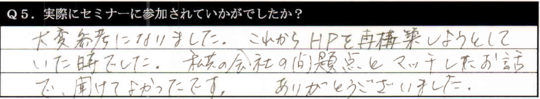 Q5．実際にセミナーに参加されていかがでしたか？
大変参考になりました。これからHPを再構築しようとして
いた時でした。私共の会社の問題点とマッチしたお話
で、聞けてよかったです。ありがとうございました。